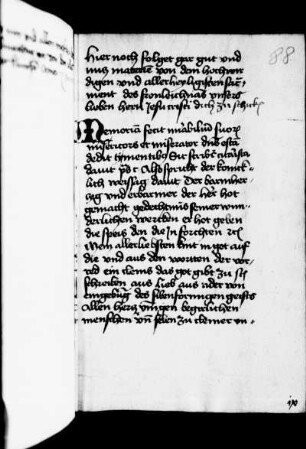 88
Hier noch folget gar gut und
nucz materien von dem hochwir
digen und aller heyligisten sacra
ment des fronleichnas unsers
lieben hern Jesu cristi
Memoriam fecit mirabiliu͂ suor͂
misericors et miserator dn͂s esca͂
dedit timentib͂
davit Also spricht der konick
lich weissag davit Der barmher
czig und erbarmer der her hot
gemacht gedechtnuss seiner wun
derlichen wercken er hot geben
die speis den die in forchten
Mein allerliebsten kint in got auf
die und aus den worten der vor
red ein clems das got gibt zu
schreiben aus lieb aus oder von
eingebung des sibenformigen geists
Allen herczen begirlichen
menschen und selen zu einer